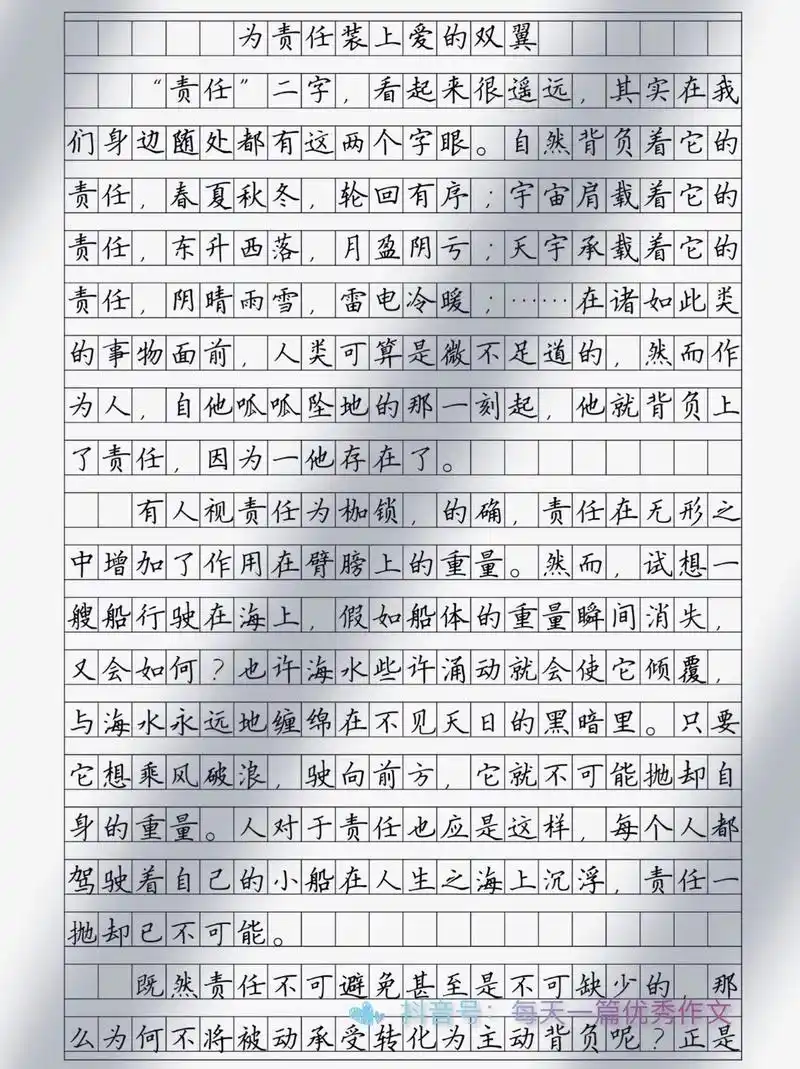 为责任装上爱的双翼
“责任”二字，看起来很遥远，其实在我
们身边随处都有这两个字眼。自然背负着它的
责任，春夏秋冬，轮回有序；宇宙肩载着它的
责任，东升西落，月盈阴亏；天宇承载着它的
责任，阴晴雨雪，雷电冷暖；……在诸如此类
的事物面前，人类可算是微不足道的，然而作
为人，自他呱呱坠地的那一刻起，他就背负上
了责任，因为一他存在了。
有人视责任为枷锁，的确，责任在无形之
中增加了作用在臂膀上的重量。然而，试想一
艘船行驶在海上，假如船体的重量瞬间消失，
又会如何？也许海水些许涌动就会使它倾覆，
与海水永远地缠绵在不见天日的黑暗里。只要
它想乘风破浪，驶向前方，它就不可能抛却自
身的重量。人对于责任也应是这样，每个人都
驾驶着自己的小船在人生之海上沉浮，责任一
抛却已不可能。
既然责任不可避免甚至是不可缺少的，那
么为何不将被动承受转化为主动背负呢？正是
抖音号：每天一篇优秀作文